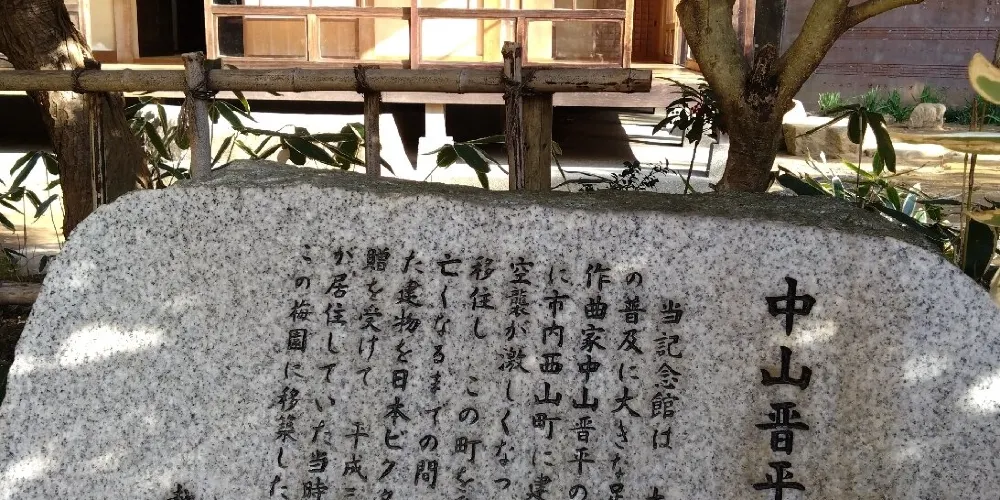 中山晋平
当記念館は
の普及に大きな足
作曲家中山晋平の
に市内西山町に建
空襲が激しくなっ
移住し この町を
亡くなるまでの間
た建物を日本ビクタ
贈を受けて 平成三
が居住していた当時
この梅園に移築した